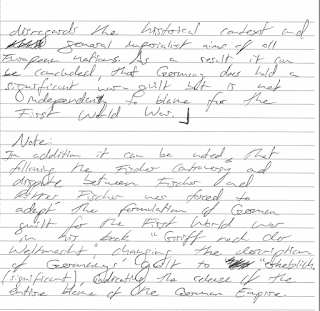 disregards the historical context and
general imperialist aims of all
European nations. As a result it can
be concluded, that Germany does hold a
significant war guilt but is not
independently to blame for the
First World War.
Note:
In addition it can be noted, that
following the Fischer controversy and
dispute between Fischer and
Ritter Fischer was forced to
adept the formulation of German
guilt for the First World War
in his book "Griff nach der
Weltmacht" changing the description
of Germany's guilt to "erheblich"
(significant), indicating the release of the
entire blame of the German Empire.